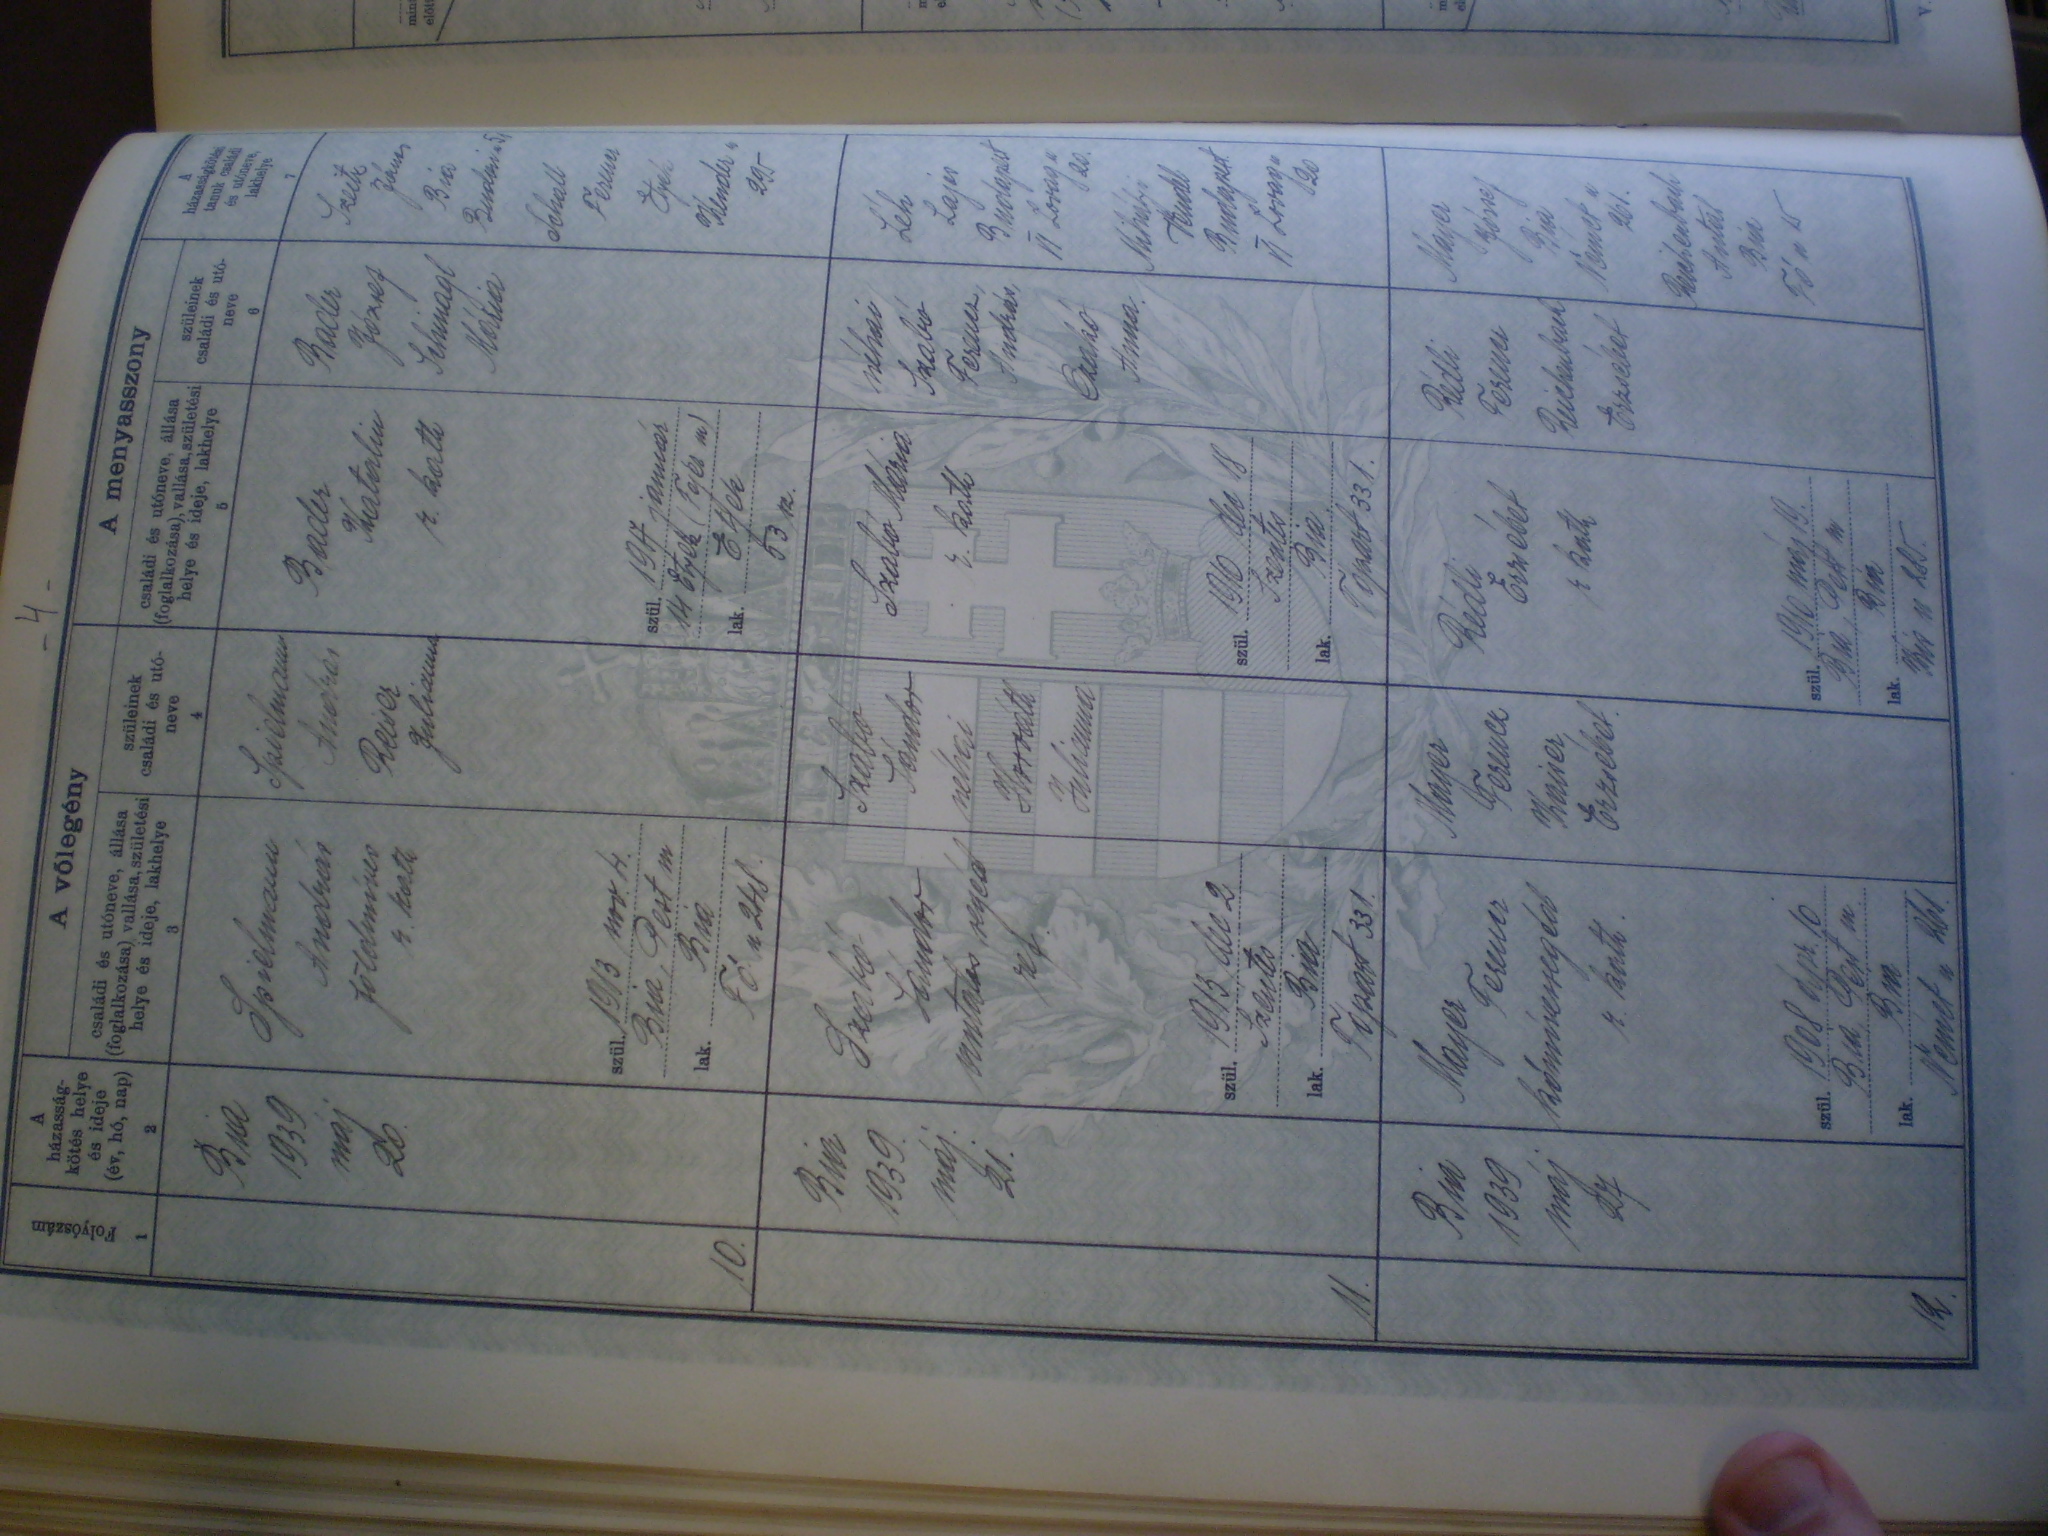 - 4 -
A vőlegény
A menyasszony
Folyószám
1
A
házasság-
kötés helye
és ideje
(év, hó, nap)
2
családi és utóneve, állása
(foglalkozása) vallása, születési
helye és ideje, lakhelye
3
szüleinek
családi és utó-
neve
4
családi és utóneve, állása
(foglalkozása), vallása, születési
helye és ideje, lakhelye
5
szüleinek
családi és utó-
neve
6
A
házasságkötési
tanuk családi
és utóneve,
lakhelye
7
10.
Bia
1939
máj
20.
Spielmann
András
földmíves
r. kath
szül. 1913 nov. 4.
Bia, Pest m
lak. Bia
Fő u 248.
Spielmann
András
Reiser
Julianna
Bader
Katalin
r. kath
szül. 1917 január
14 Etyek (Fejér m)
lak. Etyek
53 sz.
Bader
József
Schnagl
Mária
János
Bia
Schall
Ferenc
295
11.
Bia
1939.
máj.
21.
Szabó
Sándor
ref.
szül. 1913 dec 2
Szentes
lak. Bia
Tópart 331.
Szabó
Sándor
néhai
Horváth
Julianna
Szabó Mária
r. kath
szül. 1910 dec 18
Szentes
lak. Bia
Tópart 331.
néhai
Szabó
Ferenc,
András,
Anna.
Léh
Lajos
Budapest
VI Lovag u
20.
Mihályi
Budapest
VI Lovag u
20
12.
Bia
1939
máj
27
Mayer
Ferenc
kőművessegéd
r. kath.
szül. 1908 apr. 10
Bia, Pest m.
lak. Bia
Német u 261.
Mayer
Ferenc
Erzsébet.
Rédli
Erzsébet
r kath
szül. 1910 máj 19.
Bia, Pest m
lak. Bia
Rédli
Ferenc
Reichenbach
Erzsébet
Mayer
József
Bia
Német u
261.
Reichenbach
Antal
Bia
Fő u 15